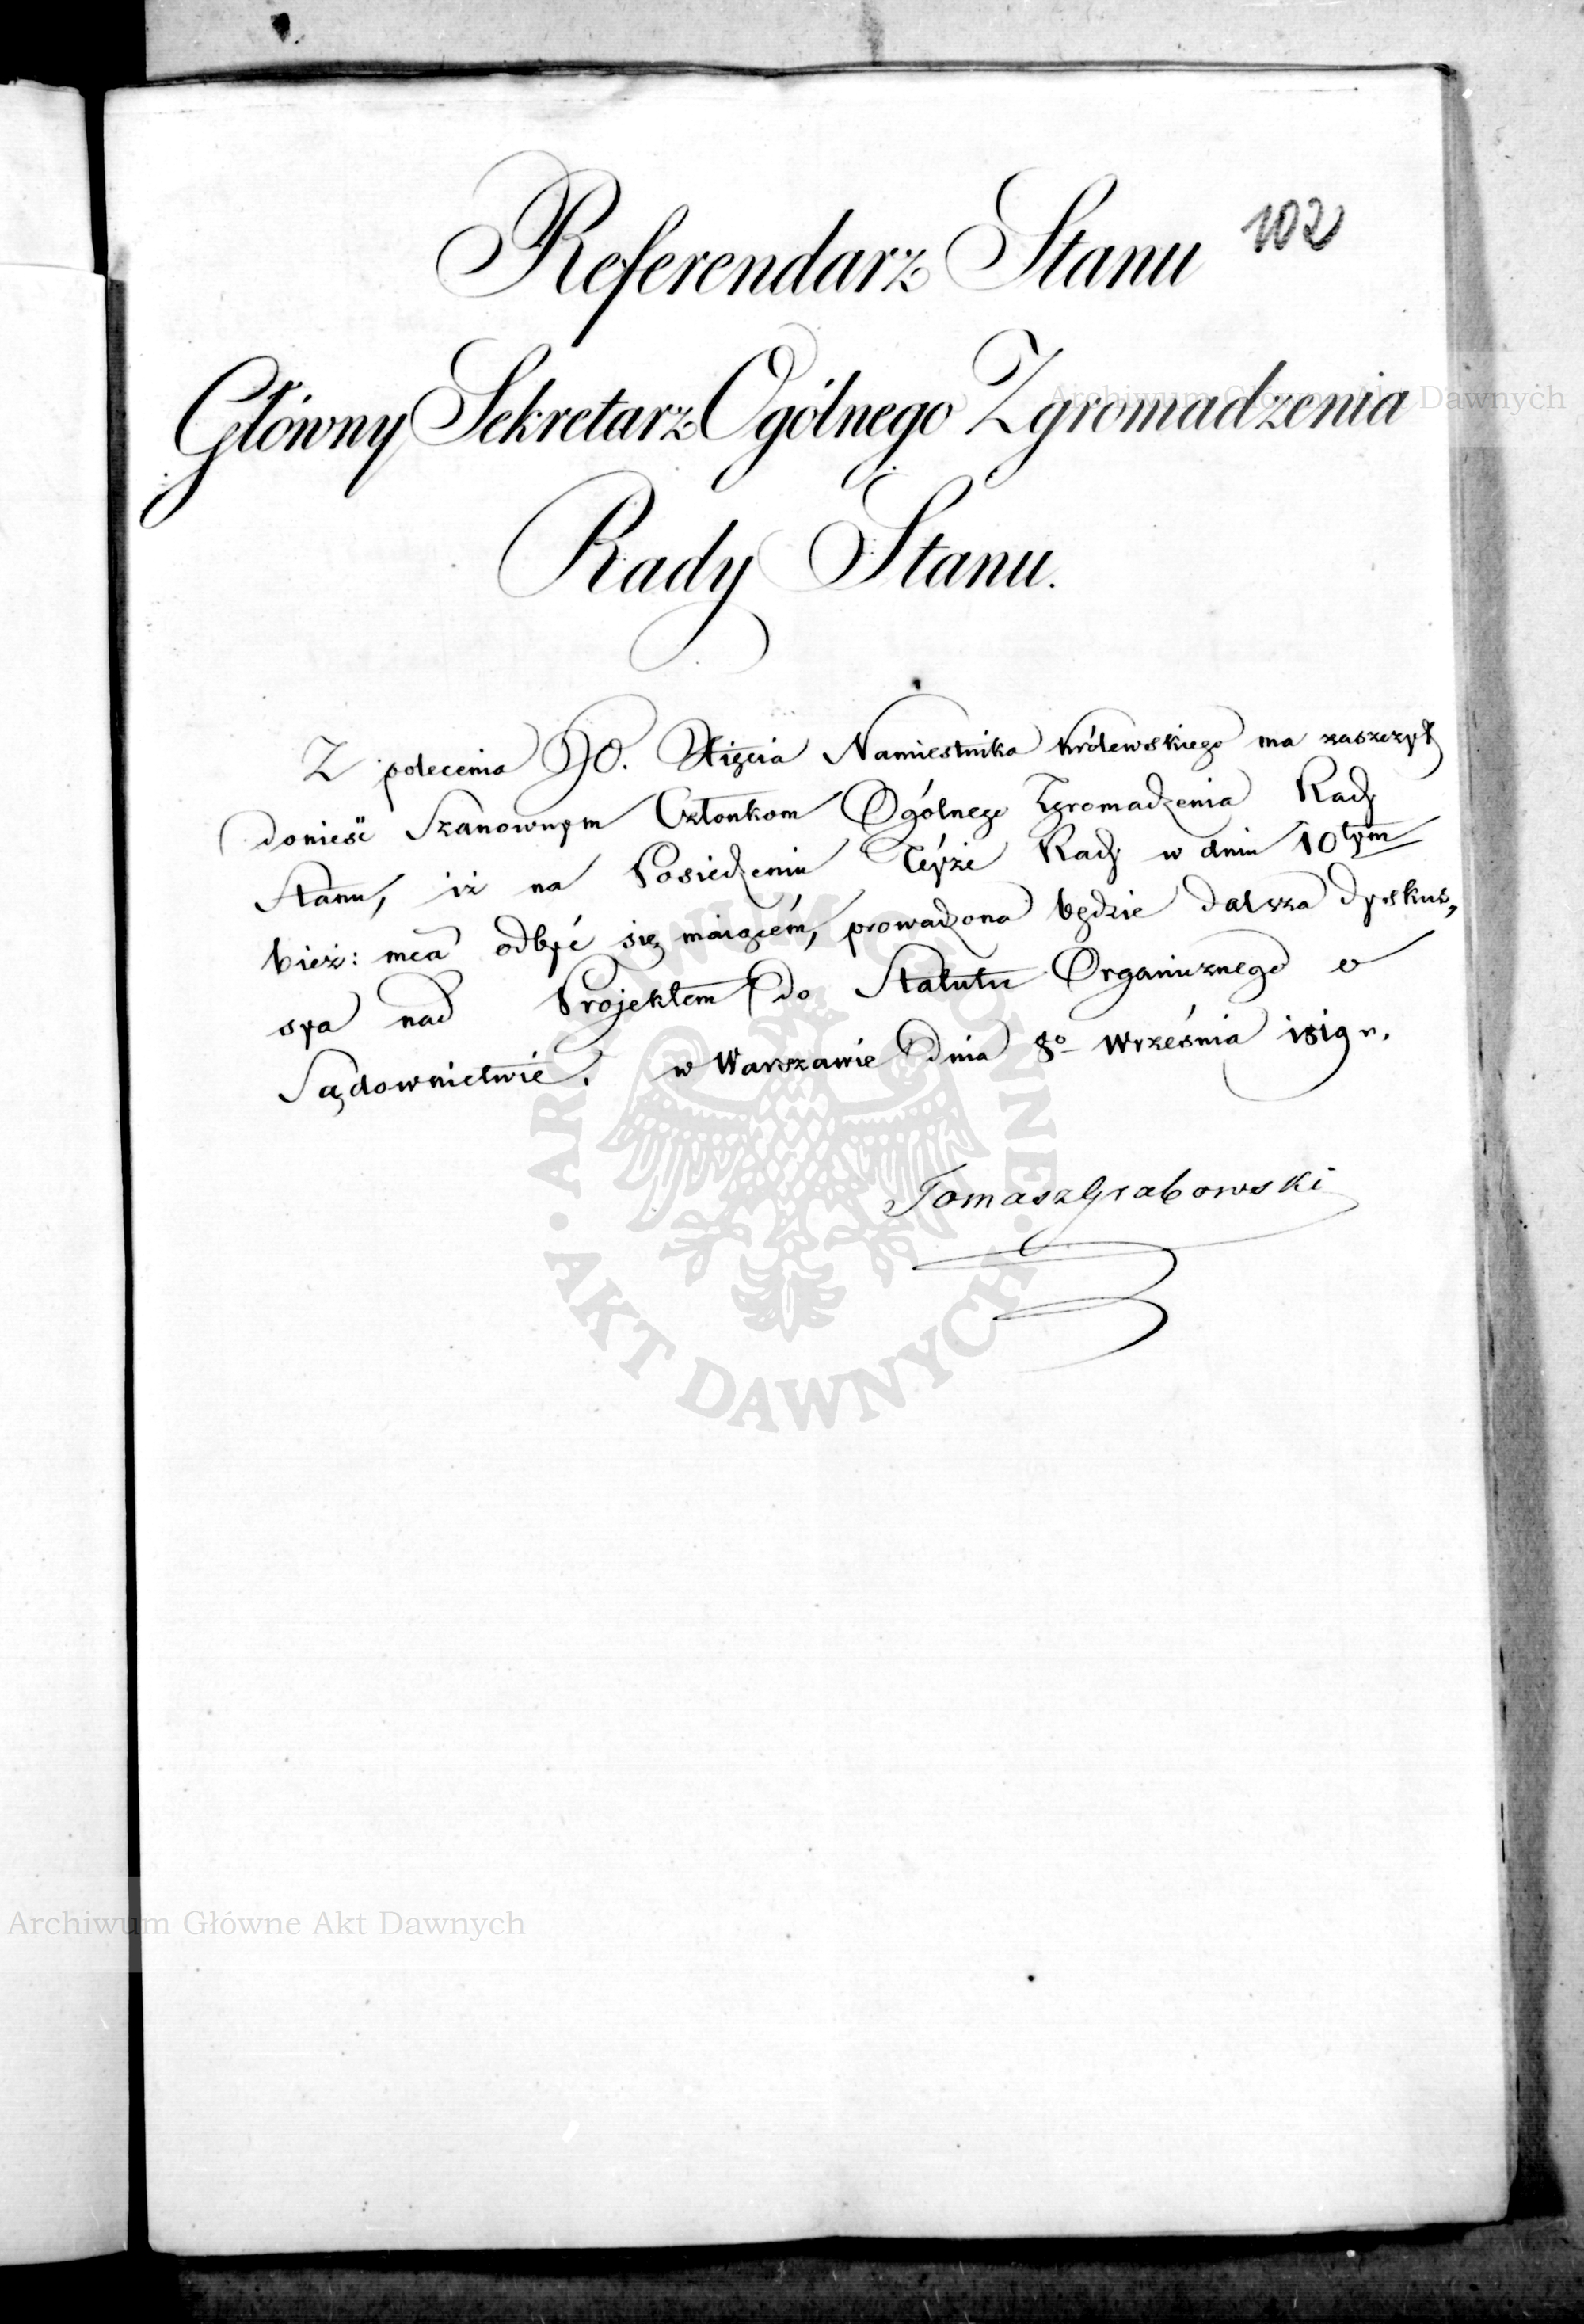 102
Referendarz Stanu
Główny Sekretarz Ogólnego Zgromadzenia
Rady Stanu.
Z polecenia JO. Xięcia Namiestnika królewskiego ma zaszczyt
donieść Szanownym Członkom Ogólnego Zgromadzenia Rady
Stanu, iż na Posiedzeniu Téyże Rady w dniu 10tym
bież: mca odbyć się maiącém, prowadzona będzie dalsza dyskus„
sya nad Projektem do Statutu Organicznego o
Sądownictwie. w Warszawie dnia 8o Września 1819 r.
Tomasz Grabowski
Archiwum Główne Akt Dawnych
ARCHIWUM GŁÓWNE · AKT DAWNYCH ·
Archiwum Główne Akt Dawnych